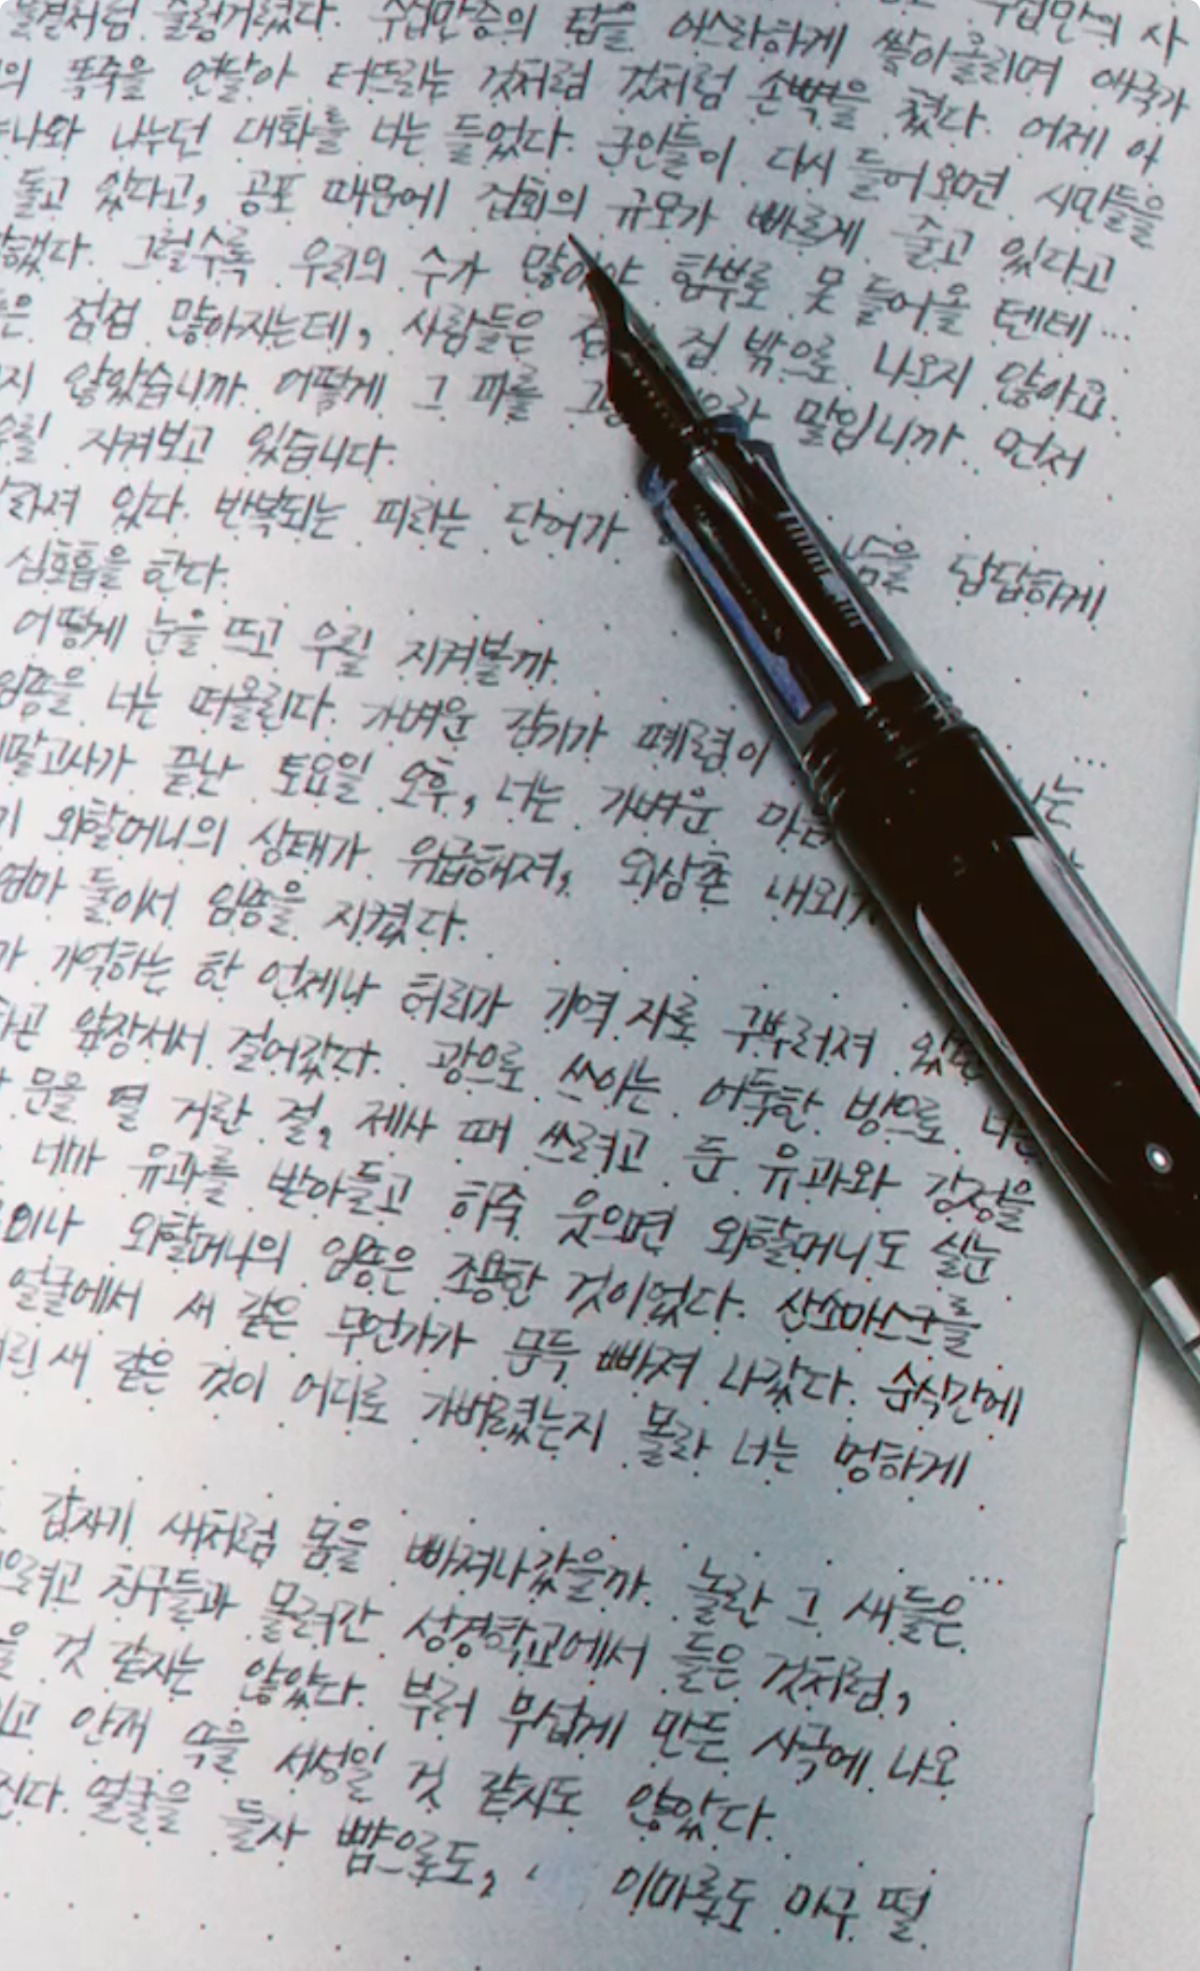 물결처럼 술렁거렸다. 수십만층의 탑을 아스라하게 쌓아올리며 애국가
의 폭죽을 연달아 터뜨리는 것처럼 것처럼 손뼉을 쳤다. 어제 아
나와 나누던 대화를 너는 들었다. 군인들이 다시 들어오면 시민들을
돌고 있다고, 공포 때문에 집회의 규모가 빠르게 줄고 있다고
했다. 그럴수록 우리의 수가 많아야 함부로 못 들어올 텐테...
은 점점 많아지는데, 사람들은 집 밖으로 나오지 않아요.
지 않았습니까. 어떻게 그 피를 말입니까. 먼저
우릴 지켜보고 있습니다.
갈라져 있다. 반복되는 피라는 단어가 답답하게
심호흡을 한다.
어떻게 눈을 뜨고 우릴 지켜볼까.
임종을 너는 떠올린다. 가벼운 감기가 폐렴이 ...
기말고사가 끝난 토요일 오후, 너는 가벼운 는
외할머니의 상태가 위급해져, 외삼촌 내외가
엄마 둘이서 임종을 지켰다.
가 기억하는 한 언제나 허리가 기역 자로 구부러져 있는
하곤 앞장서서 걸어갔다. 광으로 쓰이는 어둑한 방으로 너는
문을 열 거란 걸, 제사 때 쓰려고 둔 유과와 강정을
네가 유과를 받아들고 히죽 웃으면 외할머니도 실눈
외할머니의 임종은 조용한 것이었다. 산소마스크를
얼굴에서 새 같은 무언가가 문득 빠져 나갔다. 순식간에
린 새 같은 것이 어디로 가버렸는지 몰라 너는 멍하게
갑자기 새처럼 몸을 빠져나갔을까. 놀란 그 새들은 ...
으려고 친구들과 몰려간 성경학교에서 들은 것처럼,
을 것 같지는 않았다. 부러 무섭게 만든 사극에 나오
고 안개 속을 서성일 것 같지도 않았다.
진다. 얼굴을 들자 뺨으로도, 이마로도 마구 떨